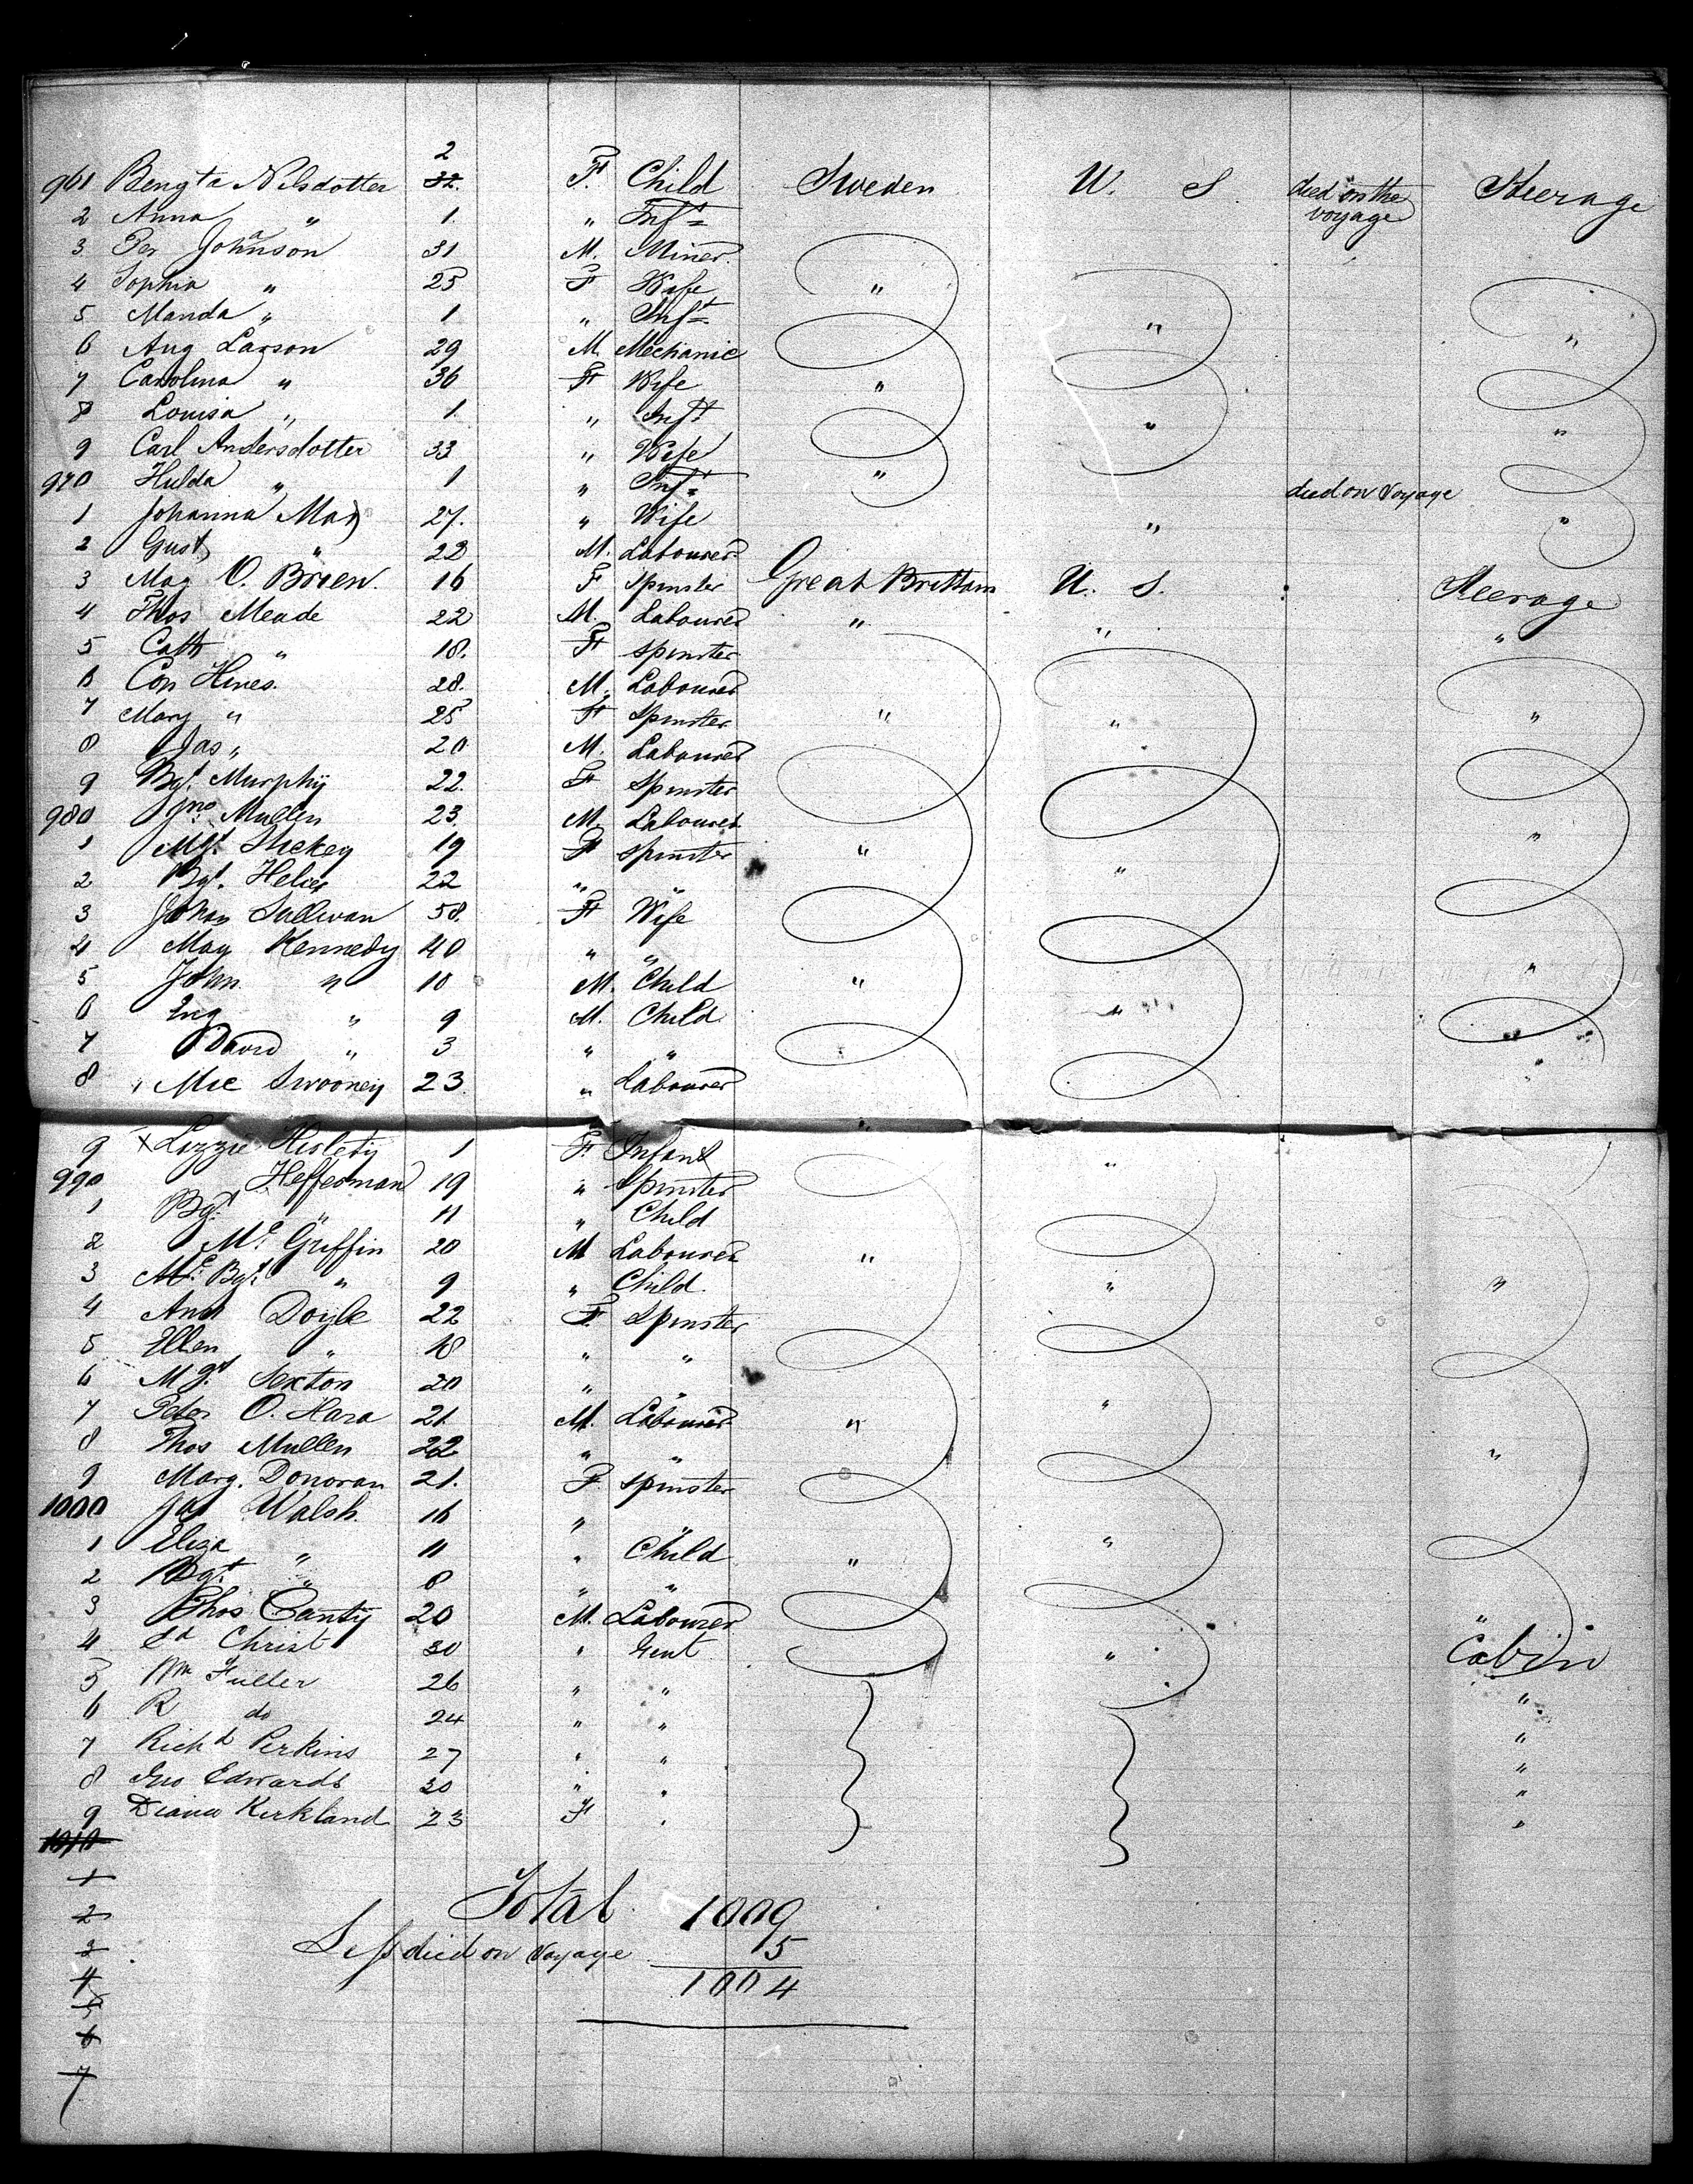 2
961 Bengta Nilsdotter 32. F. Child Sweden U. S. died on the voyage Steerage
2 Anna " 1. " Inft
3 Per Johanson 31 M. Miner.
4 Sophia " 25 F Wife "
5 Manda " 1 " Inft " "
6 Aug Larson 29 M. Mechanic
7 Carolina " 36 F Wife "
8 Louisa " 1. " Inft " "
9 Carl Andersdotter 33 " Wife
970 Hulda " 1 " Inft " died on Voyage
1 Johanna 27. " Wife " "
2 Gust " 22 M. Labourer
3 Mag O. Brien. 16 F Spinster Great Brittain U. S. Steerage
4 Thos Meade 22 M. Labourer " " "
5 Cath " 18. F Spinster
6 Con Hines. 28. M. Labourer
7 Mary " 25 F Spinster " " "
8 Jas " 20 M. Labourer
9 Bgt. Murphy 22. F Spinster
980 Jno. Mullen 23. M. Labourer "
1 Mgt. 19 F Spinster " "
2 Bgt. 22 " "
3 Johan Sullivan 58. F Wife
4 May Kennedy 40 " " "
5 John " 10 M. Child "
6 " 9 M. Child "
7 David " 3 " " "
8 Mic Swooney 23. " Labourer
9 x Lizzie 1 F. Infant "
990 Heffernan 19 " Spinster
1 Bgt " 11 " Child
2 Mc. Griffin 20 M Labourer "
3 Mc. Bgt. " 9 " Child. " "
4 Ann Doyle 22 F. Spinster
5 Ellen " 18 " "
6 Mgt Sexton 20 " " "
7 Peter O. Hara 21 M. Labourer "
8 Thos Mullen 22 " " "
9 Marg. Donovan 21. F. Spinster
1000 Walsh. 16 " " "
1 Eliza " 11 " Child "
2 Bgt " 8 " "
3 Thos Canty 20 M. Labourer "
4 Christ 30 " Gent " Cabin
5 Wm Fuller 26 " " "
6 R do 24 " " "
7 Richd Perkins 27 " " "
8 Jno Edwards 30 " " "
9 Diana Kirkland 23 F " "
1010
1
2 Total 1009
3 Less died on Voyage 5
4 1004
5
6
7